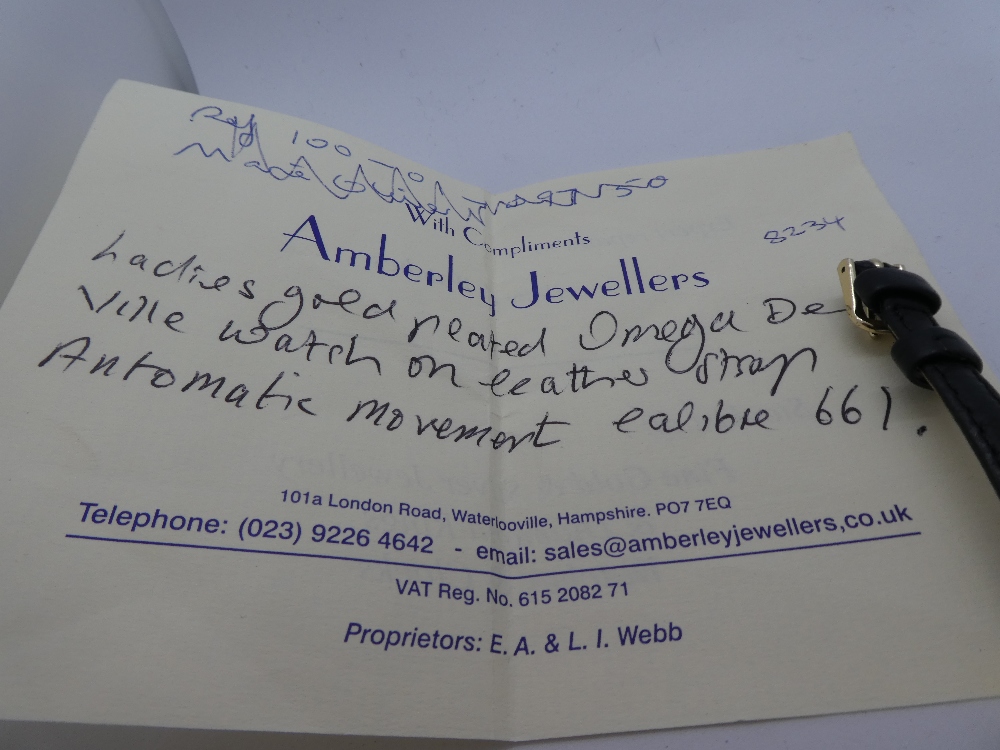 Ref 100
With Compliments
8234
Amberley Jewellers
Ladies gold plated Omega De
Ville watch on leather strap
Automatic movement calibre 661.
101a London Road, Waterlooville, Hampshire. PO7 7EQ
Telephone: (023) 9226 4642 - email: sales@amberleyjewellers.co.uk
VAT Reg. No. 615 2082 71
Proprietors: E. A. & L. I. Webb